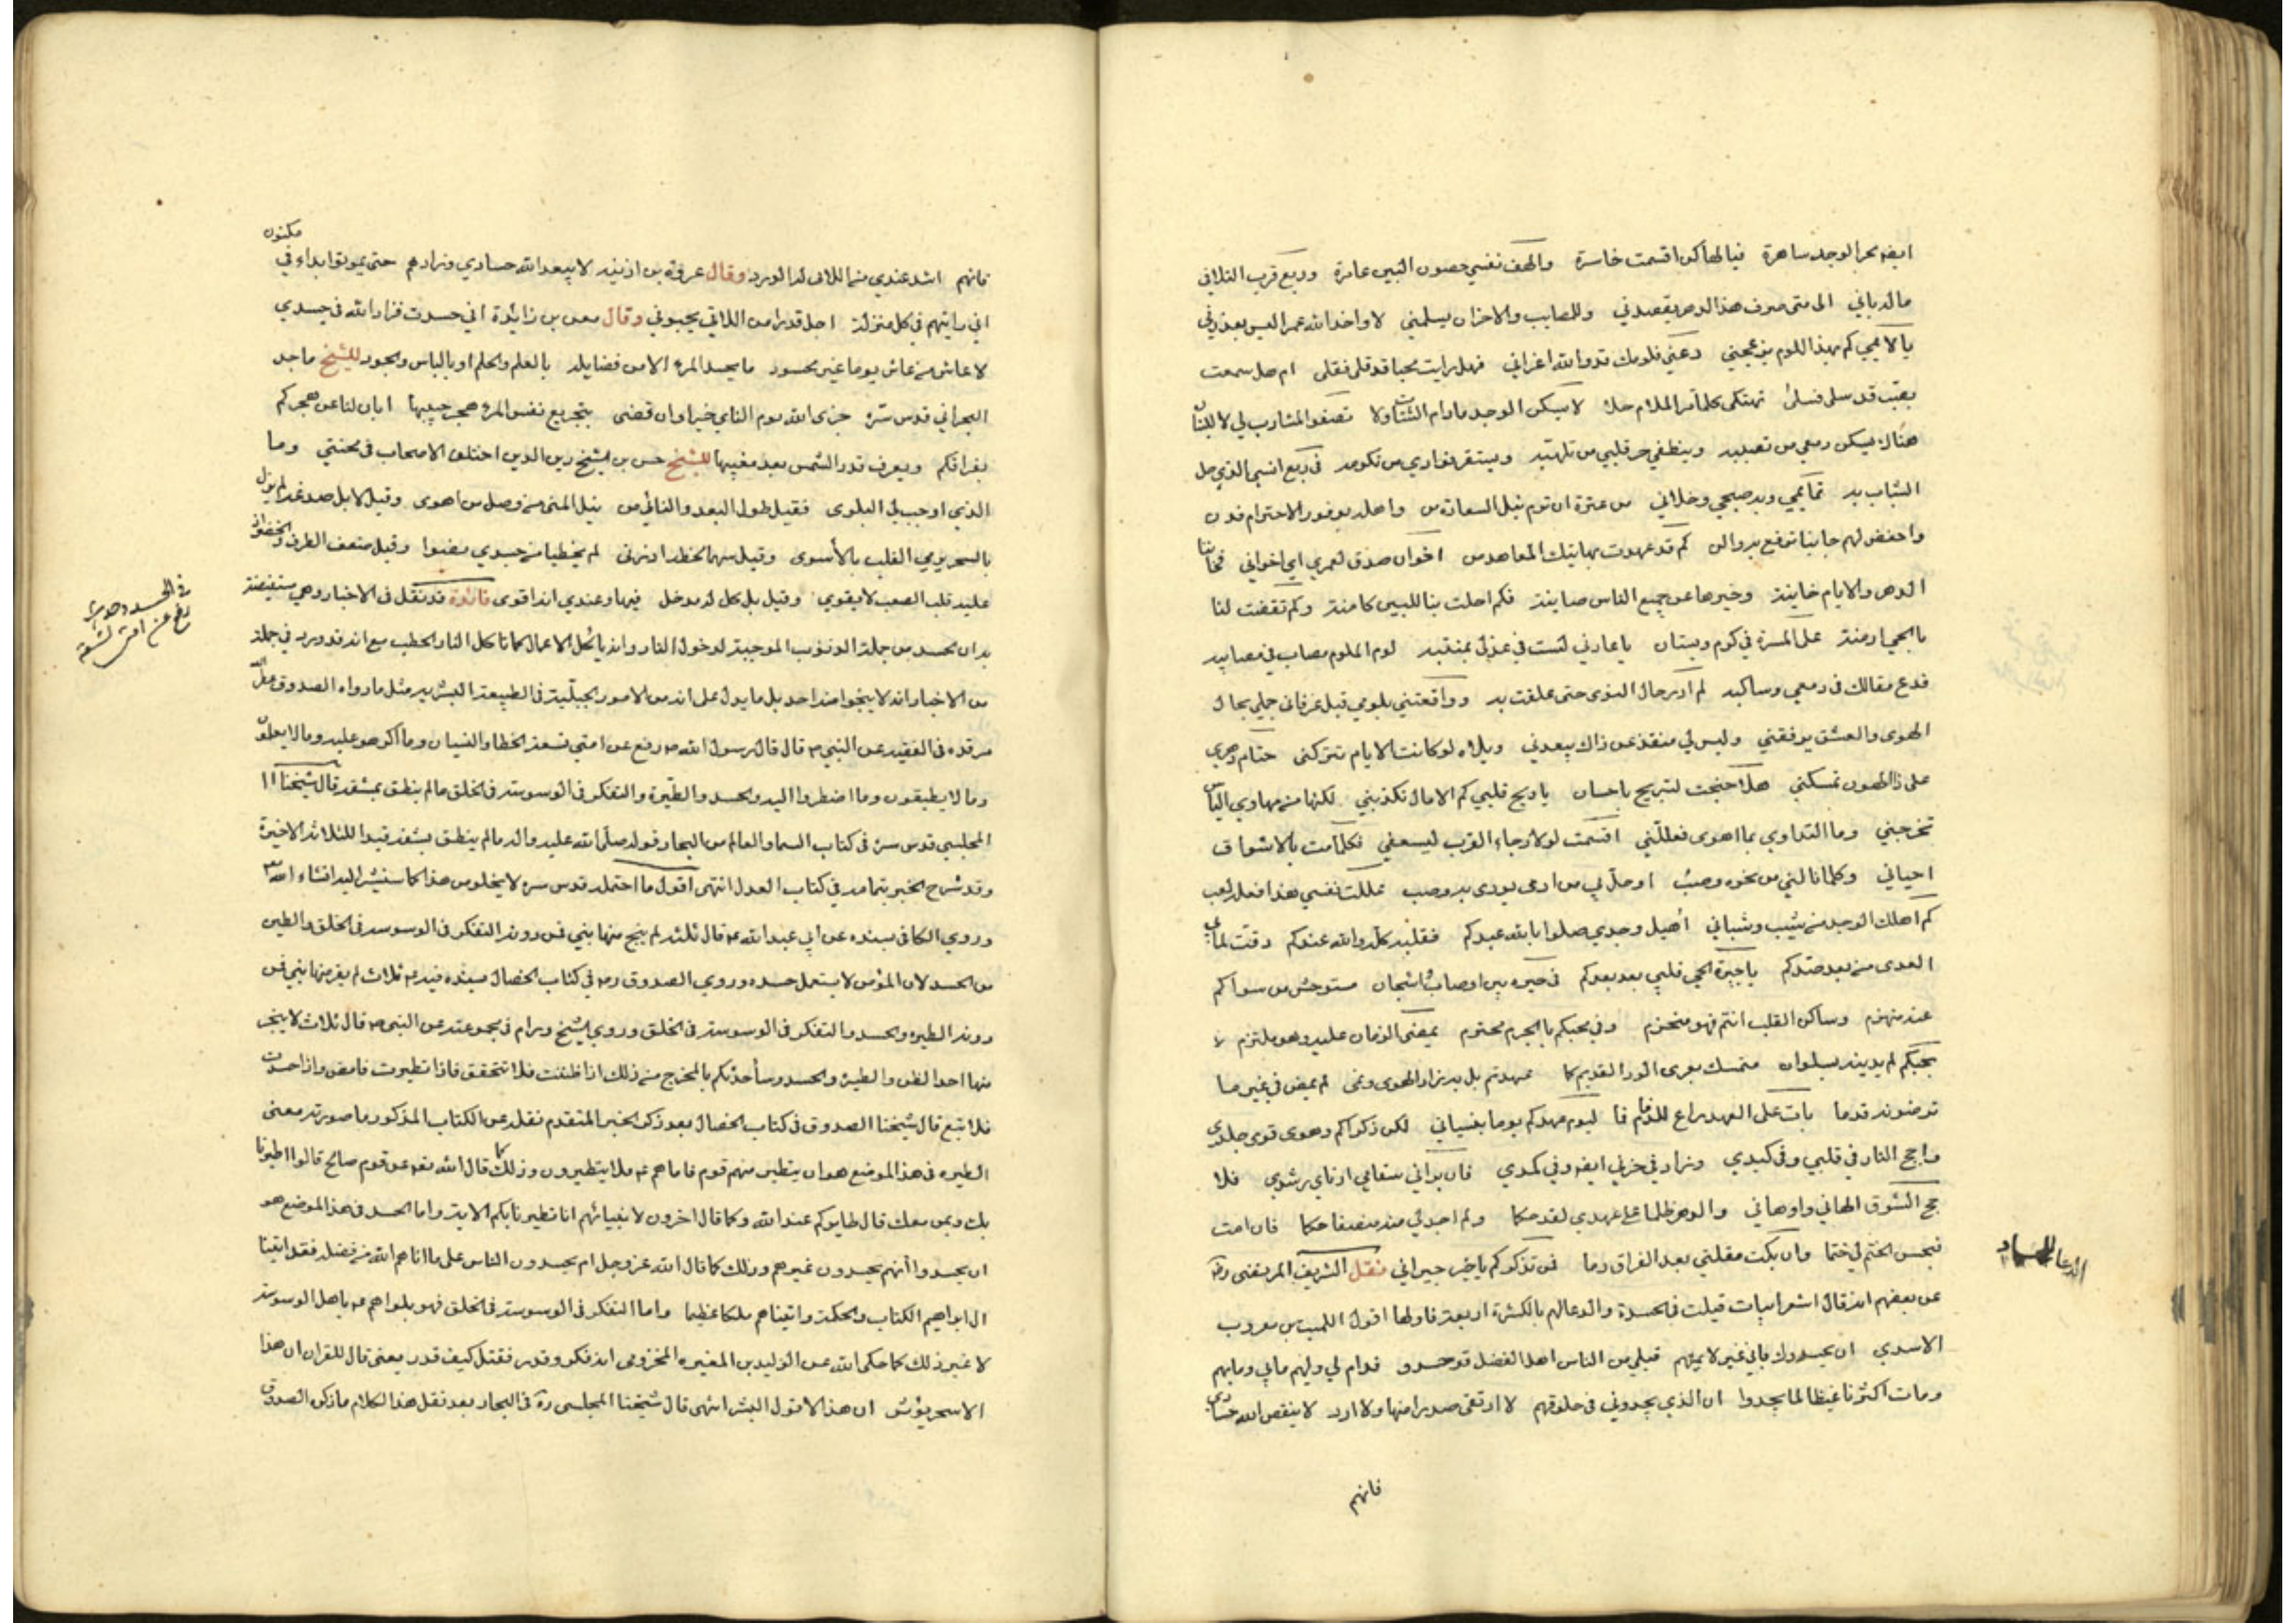 ايضه بحر الوجد ساهرة فيا لها كن اقسمت خاسرة والهف نفسي حصون البين عامرة وربع قرب التلاقي
ماله باني الى متى صرف هذا الدهر يقصدني وللمصايب والاحزان يسلمني لا واخذ الله عمر البين بعدني
يا لائمي كم بهذا اللوم تزعجني دعني فلومك قد والله اغراني فهل رايت محبا قد قلى فقلى ام هل سمعت
بصب قد سلى فسلى كلما مر الملام حلا لا يسكن الوجد مادام الشتات ولا تصفو المشارب لي الا بلبنان
هناك يسكن دمعي من تصببه وينطفي حر قلبي من تلهبه ويستقر فؤادي من في ربع انسي الذي حل
الشباب به تمائمي وبه صحبي وخلاني من عترة ان ترم نيل السعادة من واهله بوفور الاحترام فدن
واخفض لهم جانبا ترفع به والن كم قد عهدت بهاتيك المعاهد من اخوان صدق لعمري اي اخواني فحاننا
الدهر والايام خاينة وخيرها عن جميع الناس صاينة فكم احلت بنا للبين كامنة وكم تقضت لنا
بالحمى ازمنة على المسرة في كرم وبستان يا عاذلي لست في عذلي بمنتبه لوم الملوم مصاب في مصايبه
فدع مقالك في دمعي وساكبه لم ادر حال النوى حتى علقت به وواقعتني بلومي قبل عرفاني جملي بحال
الهوى والعشق يوقفني وليس لي منقذ عن ذاك يبعدني ويلاه لو كانت الايام تتركني حتام دهري
على ذا الهون تمسكني هلا جنحت لتسريح باحسان يا ويح قلبي كم الامال تكذبني لكنها من مهاوي الياس
تخرجني وما التداوي بما اهوى فعللني اقسمت لولا رجاء القرب ليسعفني فكلما مت بالاشواق
احياني وكلما نالني من نحوه وصب او حل بي من اذى يودى به وصب عللت نفسي
كم اهلك الوجد من شيب وشباني اهيل وجدي صلوا بالله عبدكم فقلبه كله والله عندكم رقت لما بي
العدى من بعد صدكم يا جيرة الحي قلبي بعد بعدكم في حيرة بين اوصاب واشجان مستوحش من سواكم
عنه منهزم وساكن القلب انتم فهو منحزم وفي محبكم بالحرم محترم يمضي الزمان عليه وهو ملتزم
بحبكم لم يدنه بسلوان متمسك بعرى الود القديم كما عهدتم بل به زاد الهوى ونمى لم يمض في غير ما
ترضونه قدما بات على العهد راع للذمام فما ليوم عهدكم يوما بنسياني لكن ذكراكم وهوى قوى جلدي
واجج النار في قلبي وفي كبدي وزاد في حزني ايضه وفي كمدي فان براني سقامي او ناى رشدي فلا
عج الشوق الهاني واوهاني والدهر ظلما على عهدي لقد حكما ولم اجد لي منه منصفا حكما فان امت
فبحسن الختم لي ختما وان بكت مقلتي بعد الفراق دما فمن تذكركم يا خير جيراني نقل الشريف المرتضى ره
عن بعضهم انه قال اشعر ابيات قيلت في الحسدة والدعاء لهم بالكثرة اربعة فاولها اقول الكميت بن معروب
الاسدي ان يحسدوك فاني غير لايمهم قبلي من الناس اهل الفضل قد حسدوا فدام لي ولهم ما بي وما بهم
ومات اكثرنا غيظا لما يجدوا ان الذي يجدوني في حلوقهم لا ارتقي صدرا منها ولا ارد لا ينقص الله حسادي
الدعا للحساد
فانهم
مكنون
فانهم اشد عندي من اللائي له الورد وقال عروة بن اذينه لا يبعد الله حسادي وزادهم حتى يموتوا بداء في
اني رايتهم في كل منزلة اجل قدرا من اللائي يحبوني وقال معن بن زائدة اني حسدت فزاد الله في حسدي
لا عاش من عاش يوما غير محسود ما يحسد المرء الا من فضايله بالعلم والحلم او بالباس والجود للشيخ ماجد
البحراني قدس سره جزى الله يوم الناي خيرا وان قضى بتجريع نفس المرء هجر حبيبها ابان لنا عن هجركم
بفراقكم ويعرف قدر الشمس بعد مغيبها للشيخ حسن بن الشيخ زين الدين اختلف الاصحاب في محنتي وما
الذي اوجب لي البلوى فقيل طول البعد والنائي من نيل المنى من وصل من اهوى وقيل لا بل صدغه لم يزل
بالسحر يرمي القلب بالأسوى وقيل سهما لحظه اذ رنى لم يخطيا من جسدي عضوا وقيل ضعف الطرف والخصر اذ
عليه قلب الصب لا يقوى وقيل بل كل له مدخل فيها وعندي انه اقوى فائدة قد نقل في الاخبار وهي مستفيضة
بد ان الحسد من جملة الذنوب الموجبة لدخول النار وانه ياكل الاعمال كما تاكل النار الحطب مع انه قد ورد في جملة
من الاخبار انه لا ينجوا منه احد بل ما يدل على انه من الامور الجبلية في الطبيعة البشرية مثل ما رواه الصدوق عطر الله
مرقده في الفقيه عن النبي ص قال قال رسول الله ص رفع عن امتي تسعة الخطا والنسيان وما اكرهوا عليه وما لا يعلمون
وما لا يطيقون وما اضطروا اليه والحسد والطيرة والتفكر في الوسوسة في الخلق ما لم ينطق بشفة قال شيخنا
المجلسي قدس سره في كتاب السماء والعالم من البحار قوله صلى الله عليه واله ما لم ينطق بشفة قيدا للثلاثة الاخيرة
وقد شرح الخبر بتمامه في كتاب العدل انتهى اقول ما احتمله قدس سره لا يخلو من هذا كما سنشير اليه انشاء الله
وروي الكافي بسنده عن ابي عبد الله ع قال ثلثة لم ينج منها نبي فمن دونه التفكر في الوسوسة في الخلق والطيرة
والحسد الا ان المؤمن لا يستعمل حسده وروى الصدوق ره في كتاب الخصال بسنده فيه ع ثلاث لم يعر منها نبي فمن
دونه الطيره والحسد والتفكر في الوسوسة في الخلق وروى الشيخ ورام في مجموعته عن النبي ص قال ثلاث لا ينجو
منها احد الظن والطيرة والحسد وسأحدثكم بالمخرج من ذلك اذا ظننت فلا تتحقق فاذا تطيرت فامض واذا حسدت
فلا تبغ قال شيخنا الصدوق في كتاب الخصال بعد ذكر الخبر المتقدم نقله عن الكتاب المذكور ما صورته معنى
الطيره في هذا الموضع هو ان يتطير منهم قوم فاما هم ع فلا يتطيرون وذلك كما قال الله تعه عن قوم صالح قالوا اطيرنا
بك وبمن معك قال طايركم عند الله وكما قال اخرون لانبيائهم انا تطيرنا بكم الاية واما الحسد في هذا الموضع هو
ان يحسدوا أنهم يحسدون غيرهم وذلك كما قال الله عز وجل ام يحسدون الناس على ما اتاهم الله من فضله فقد اتينا
ال ابراهيم الكتاب والحكمة واتيناهم ملكا عظيما واما التفكر في الوسوسة في الخلق فهو بلواهم ع باهل الوسوسة
لا غير ذلك كما حكى الله عن الوليد بن المغيره المخزومي انه فكر وقدر فقتل كيف قدر يعني قال للقران ان هذا
الا سحر يؤثر ان هذا الا قول البشر انتهى قال شيخنا المجلسي ره في البحار بعد نقل هذا الكلام ما ذكره الصدوق